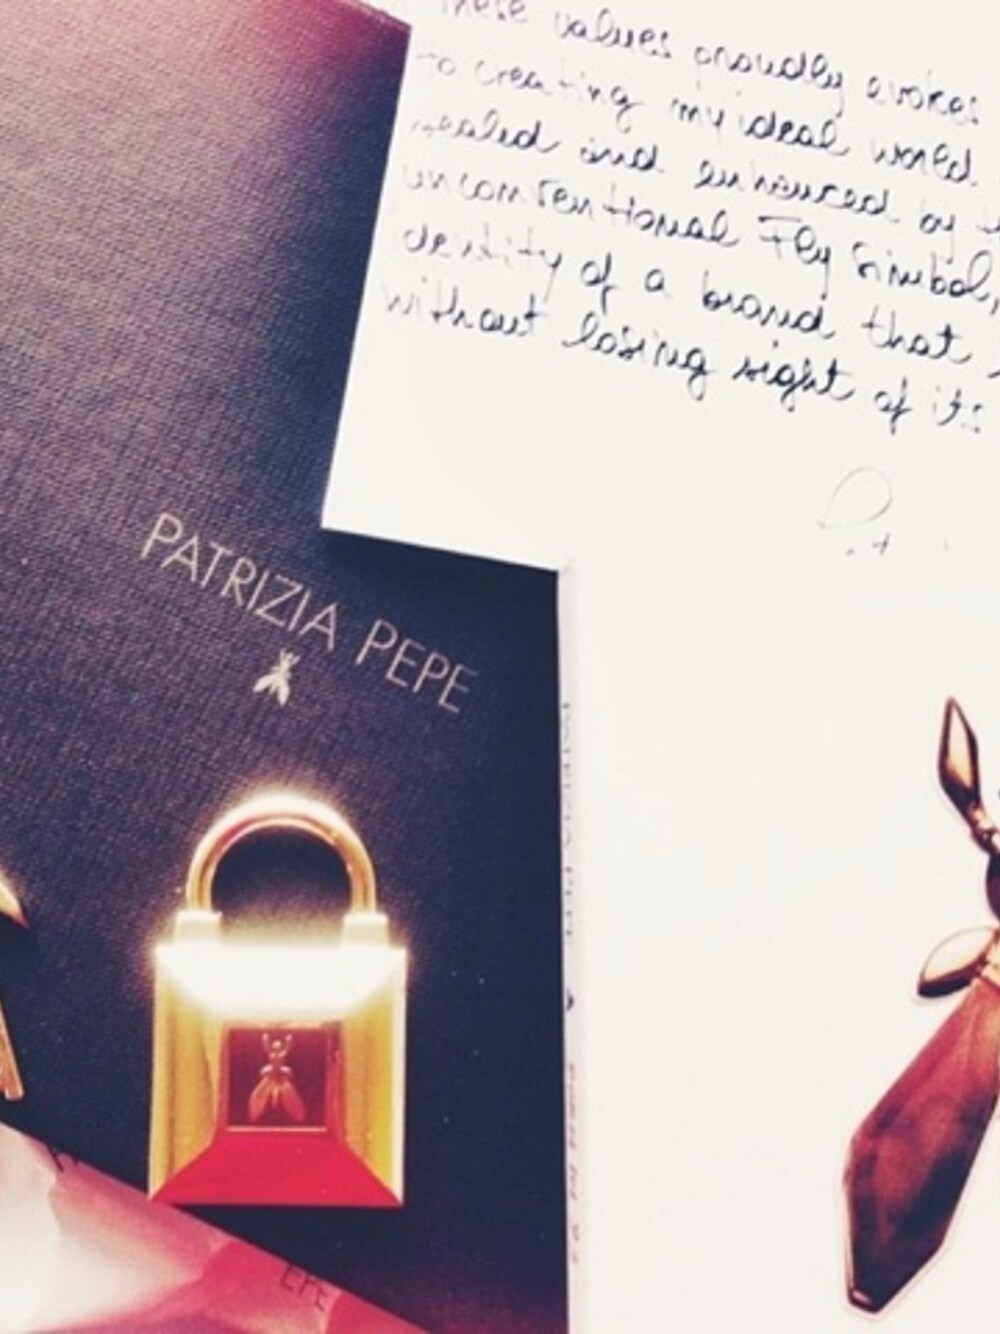 these values proudly evokes
to creating my ideal world.
sealed and enhanced by
unconventional Fly Simbol,
dentity of a brand that
without losing sight of its
PATRIZIA PEPE
EPE